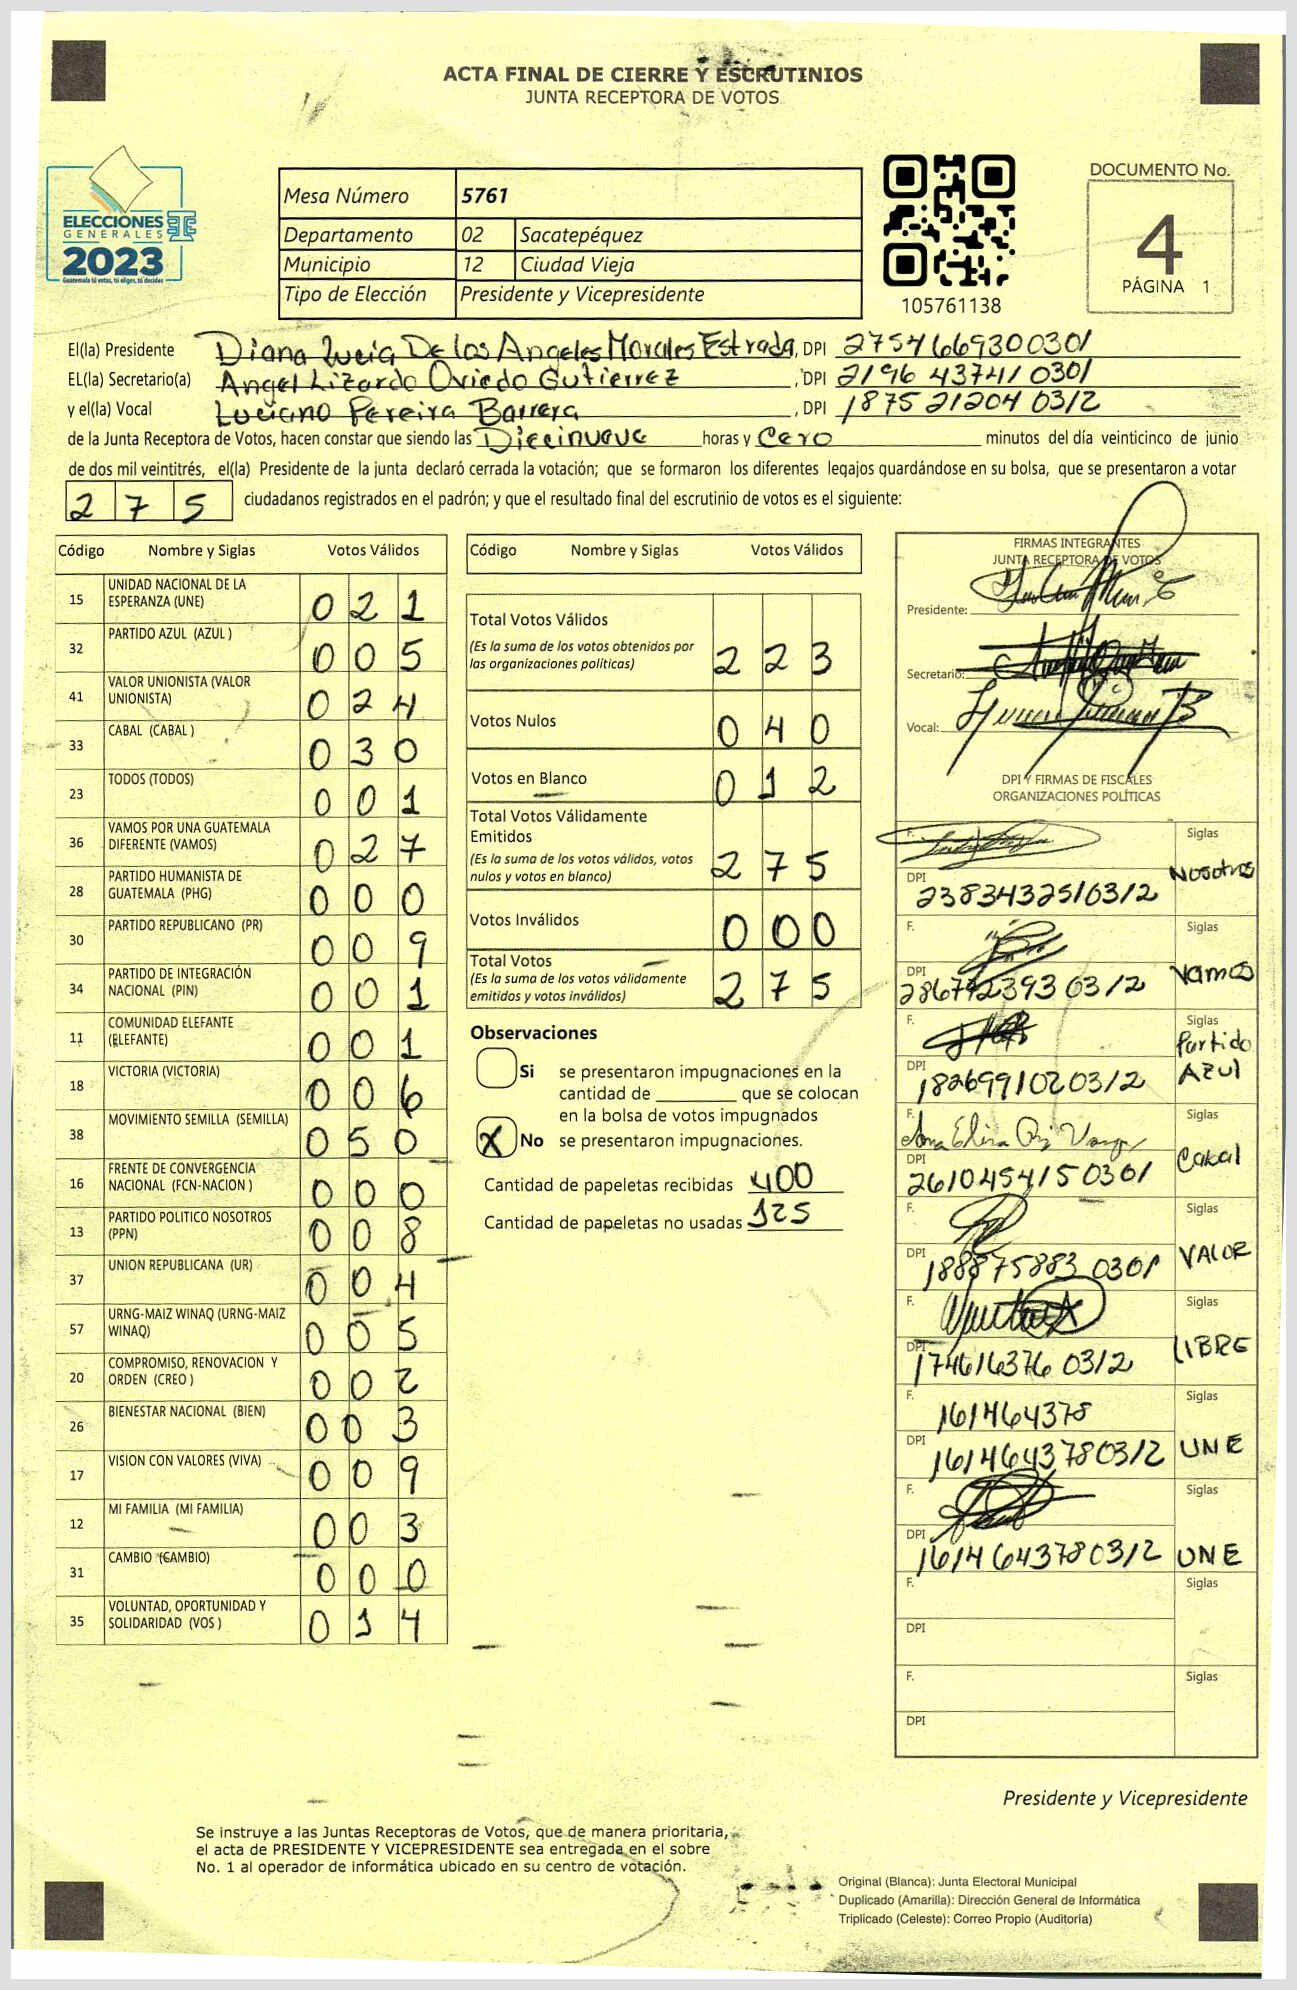 ACTA FINAL DE CIERRE Y ESCRUTINIOS
JUNTA RECEPTORA DE VOTOS
ELECCIONES
GENERALES
2023
Guatemala tú votas, tú eliges, tú decides
Mesa Número 5761
Departamento 02 Sacatepéquez
Municipio 12 Ciudad Vieja
Tipo de Elección Presidente y Vicepresidente
105761138
DOCUMENTO No.
4
PÁGINA 1
El(la) Presidente Diana Lucia De los Angeles Morales Estrada, DPI 2754669300301
EL(la) Secretario(a) Angel Lizardo Oviedo Gutierrez, DPI 2196 43741 0301
y el(la) Vocal Luciano Pereira Barrera, DPI 1875 21204 0312
de la Junta Receptora de Votos, hacen constar que siendo las Diecinueve horas y Cero minutos del día veinticinco de junio
de dos mil veintitrés, el(la) Presidente de la junta declaró cerrada la votación; que se formaron los diferentes legajos guardándose en su bolsa, que se presentaron a votar
275 ciudadanos registrados en el padrón; y que el resultado final del escrutinio de votos es el siguiente:
Código Nombre y Siglas Votos Válidos
15 UNIDAD NACIONAL DE LA ESPERANZA (UNE) 021
32 PARTIDO AZUL (AZUL ) 005
41 VALOR UNIONISTA (VALOR UNIONISTA) 024
33 CABAL (CABAL ) 030
23 TODOS (TODOS) 001
36 VAMOS POR UNA GUATEMALA DIFERENTE (VAMOS) 027
28 PARTIDO HUMANISTA DE GUATEMALA (PHG) 000
30 PARTIDO REPUBLICANO (PR) 009
34 PARTIDO DE INTEGRACIÓN NACIONAL (PIN) 001
11 COMUNIDAD ELEFANTE (ELEFANTE) 001
18 VICTORIA (VICTORIA) 006
38 MOVIMIENTO SEMILLA (SEMILLA) 050
16 FRENTE DE CONVERGENCIA NACIONAL (FCN-NACION ) 000
13 PARTIDO POLITICO NOSOTROS (PPN) 008
37 UNION REPUBLICANA (UR) 004
57 URNG-MAIZ WINAQ (URNG-MAIZ WINAQ) 005
20 COMPROMISO, RENOVACION Y ORDEN (CREO ) 002
26 BIENESTAR NACIONAL (BIEN) 003
17 VISION CON VALORES (VIVA) 009
12 MI FAMILIA (MI FAMILIA) 003
31 CAMBIO (CAMBIO) 000
35 VOLUNTAD, OPORTUNIDAD Y SOLIDARIDAD (VOS ) 014
Código Nombre y Siglas Votos Válidos
Total Votos Válidos
(Es la suma de los votos obtenidos por
las organizaciones políticas) 223
Votos Nulos 040
Votos en Blanco 012
Total Votos Válidamente
Emitidos
(Es la suma de los votos válidos, votos
nulos y votos en blanco) 275
Votos Inválidos 000
Total Votos
(Es la suma de los votos válidamente
emitidos y votos inválidos) 275
Observaciones
Si se presentaron impugnaciones en la
cantidad de ________ que se colocan
en la bolsa de votos impugnados
X No se presentaron impugnaciones.
Cantidad de papeletas recibidas 400
Cantidad de papeletas no usadas 125
FIRMAS INTEGRANTES
JUNTA RECEPTORA DE VOTOS
Presidente:
Secretario:
Vocal:
DPI Y FIRMAS DE FISCALES
ORGANIZACIONES POLÍTICAS
F. Siglas
DPI 2383432510312 Nosotros
F. Siglas
DPI 286792393 0312 Vamos
F. Siglas
DPI 1826991020312 Partido Azul
F. Siglas
DPI 2610454150301 Cabal
F. Siglas
DPI 188875883 0301 VALOR
F. Siglas
DPI 174616376 0312 LIBRE
F. 161464378 Siglas
DPI 1614643780312 UNE
F. Siglas
DPI 1614643780312 UNE
F. Siglas
DPI
F. Siglas
DPI
Presidente y Vicepresidente
Se instruye a las Juntas Receptoras de Votos, que de manera prioritaria,
el acta de PRESIDENTE Y VICEPRESIDENTE sea entregada en el sobre
No. 1 al operador de informática ubicado en su centro de votación.
Original (Blanca): Junta Electoral Municipal
Duplicado (Amarilla): Dirección General de Informática
Triplicado (Celeste): Correo Propio (Auditoría)